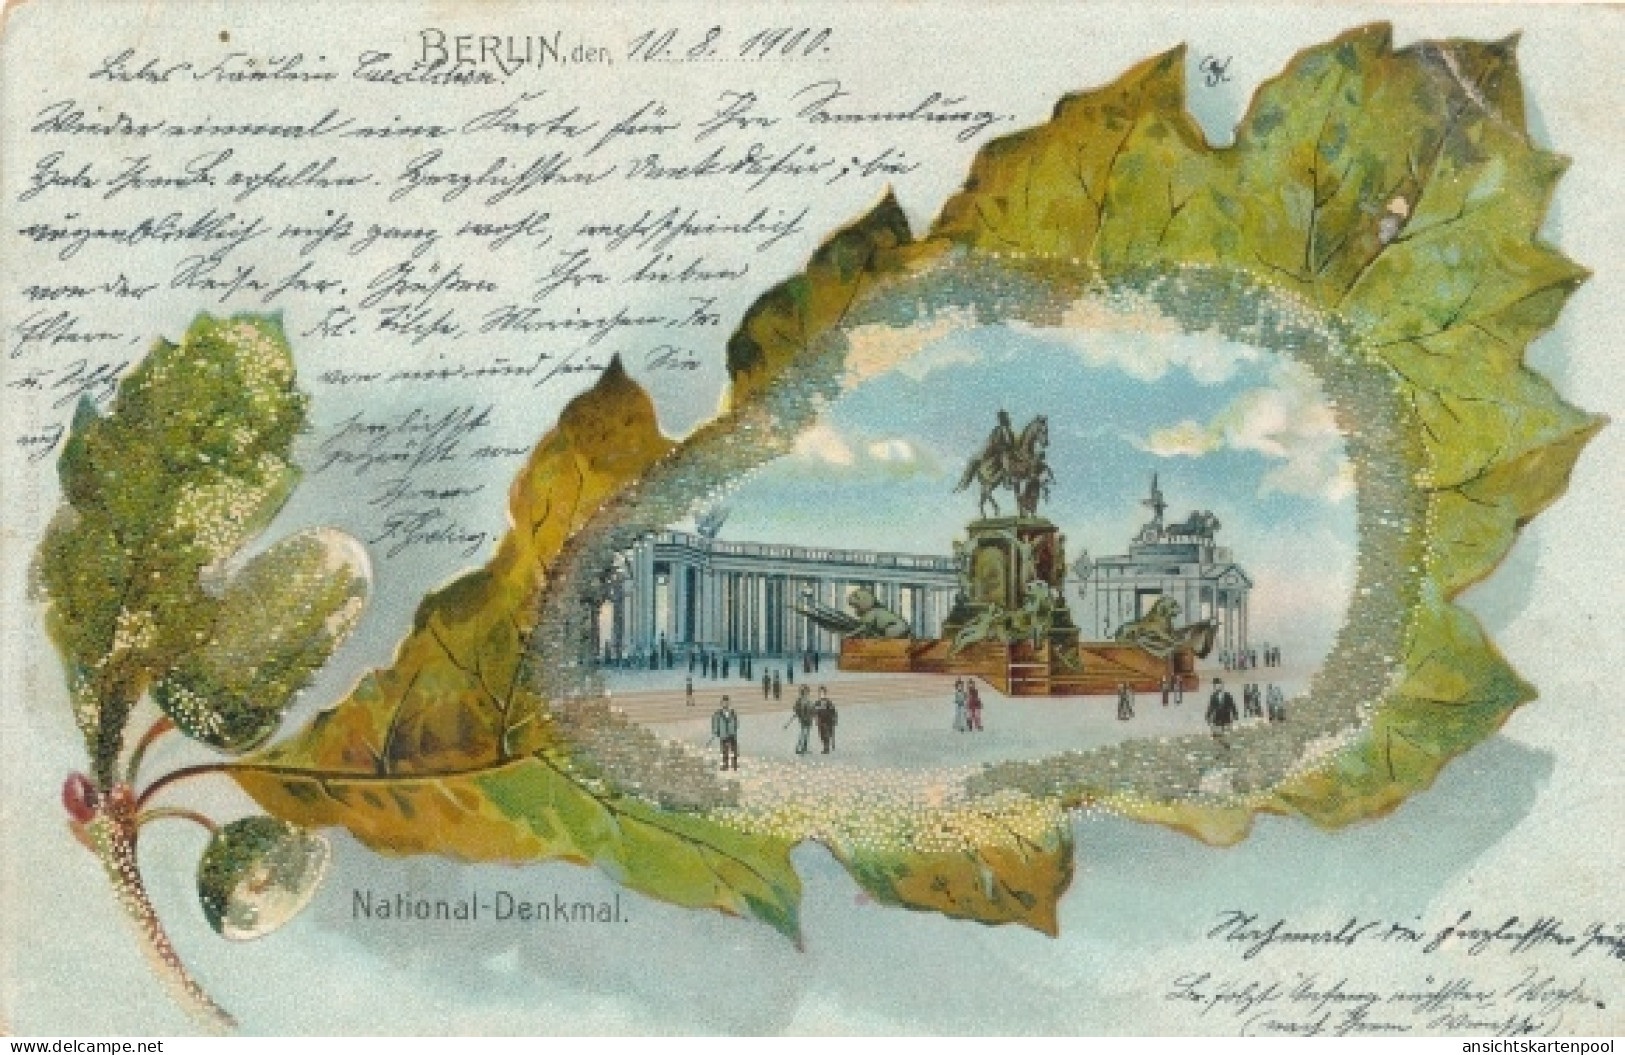 BERLIN, den 10. 8. 1900.
Liebes Fräulein
Wieder einmal eine Karte für Ihre Sammlung.
Habe Ihren B. erhalten. Herzlichsten Dank dafür, bin
augenblicklich nicht ganz wohl, wahrscheinlich
von der Reise her. Grüßen Ihre lieben
Eltern, Frl. Ilse,
u. von mir und seien Sie
auf herzlichst
gegrüßt von
Ihrem
National-Denkmal.
Nochmals die herzlichsten
Br. folgt Anfang nächster Woche
(nach Ihrem Wunsche).
ansichtskartenpool